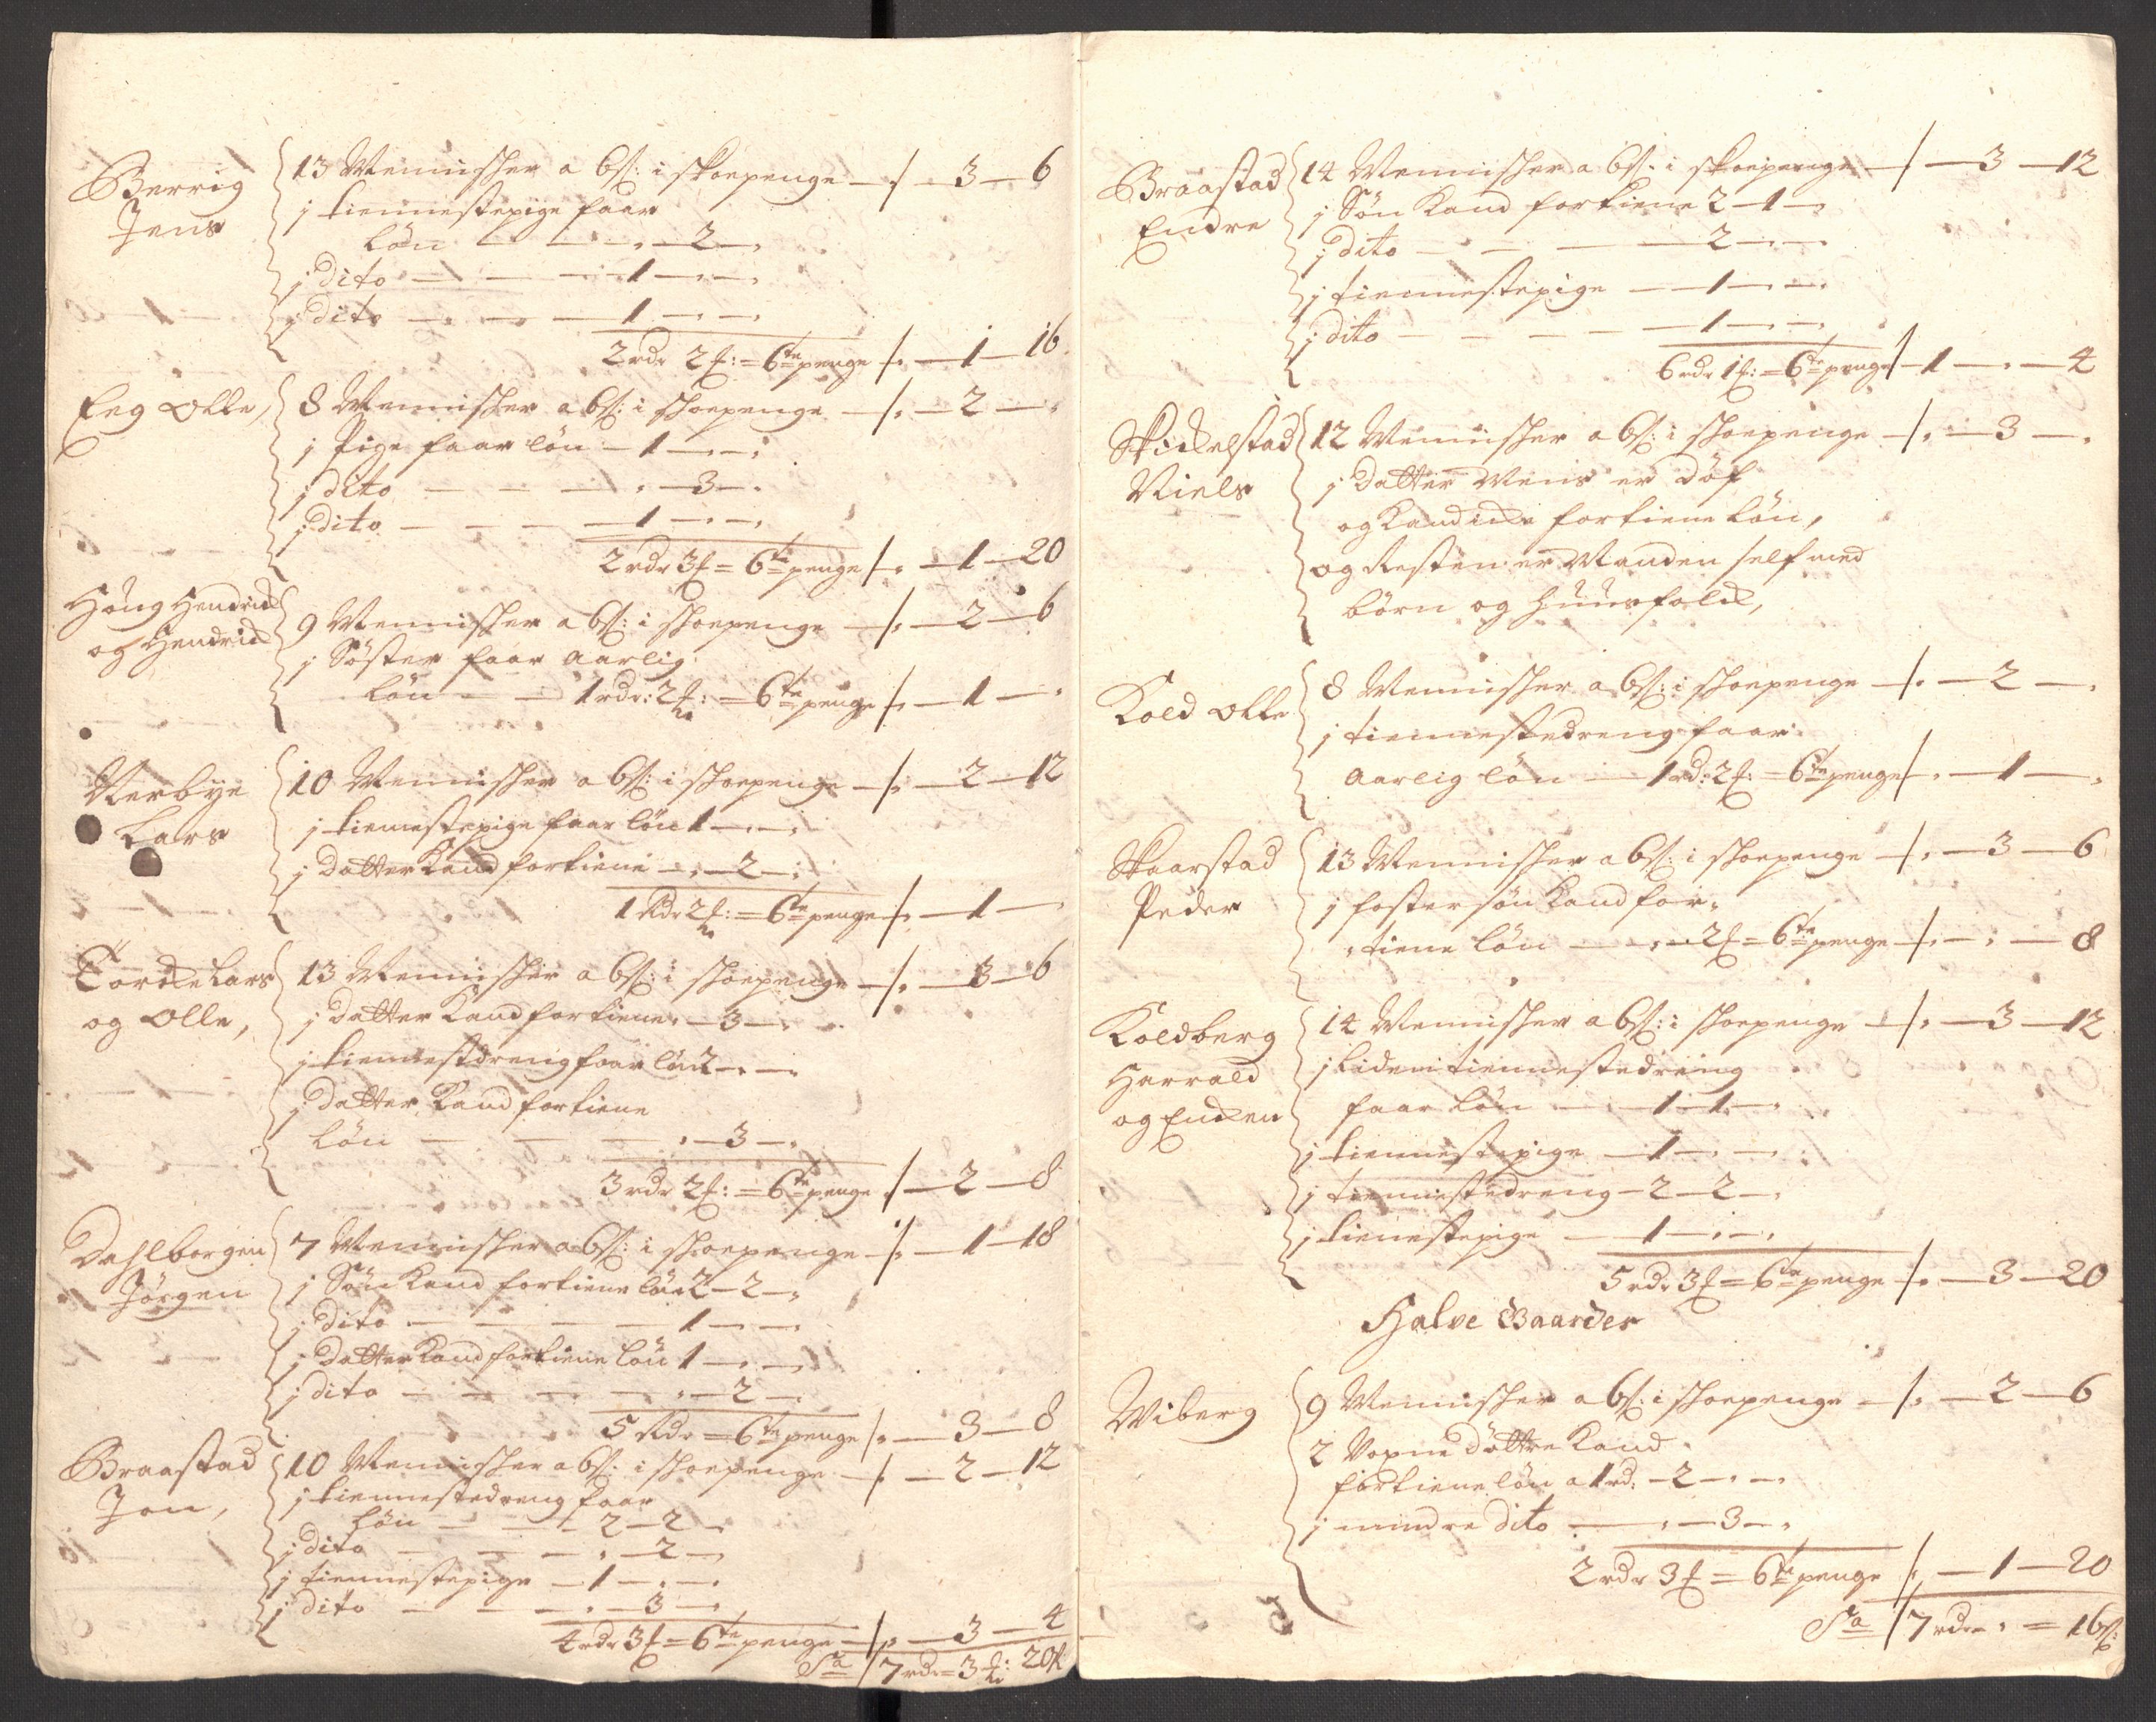 Berrig
Jens
13 Mennisker a 6ß: i skoepenge —/. — 3 — 6
j tiennestepige faar
løn — — — „ — 2 — „
j dito — — — 1 — „ — „
j dito — „ — 1 — „ — „
2 rdr 2ƒ: = 6te penge /. — 1 — 16
Eeg Olle,
8 Mennisker a 6ß: i skoepenge —/. — 2 — „
j Pige faar løn — 1 — „ — „
j dito — — — „ — 3 — „
j dito — — — 1 — „ — „
2 rdr 3ƒ = 6te penge /. — 1 — 20
Høug Hendrich
og Hendrich
9 Mennisker a 6ß: i skoepenge —/. — 2 — 6
j Søster faar aarlig
løn — — 1 rdr: 2ƒ: = 6te penge /. — 1 — „
Nerbye
Lars
10 Mennisker a 6ß: i skoepenge —/. — 2 — 12
j tiennestepige faar løn 1 — „ — „
j datter kand fortiene — „ — 2 — „
1 Rdr 2ƒ: = 6te penge /. — 1 — „
Lars
og Olle,
13 Mennisker a 6ß: i skoepenge —/. — 3 — 6
j datter kand fortiene „ — 3 — „
j tiennestdreng faar løn 2 — „ — „
j datter kand fortiene
løn — — — „ — 3 — „
3 rdr 2ƒ: = 6te penge /. — 2 — 8
Dahlborgen
Jørgen
7 Mennisker a 6ß: i skoepenge —/. — 1 — 18
j Søn kand fortiene løn 2 — 2 — „
j dito — — — 1 — „ — „
j datter kand fortiene løn 1 — „ — „
j dito — — — „ — 2 — „
5 Rdr = 6te penge /. — 3 — 8
Braastad
Jon,
10 Mennisker a 6ß: i skoepenge —/. — 2 — 12
j tiennestedreng faar
løn — — 2 — 2 — „
j dito — — — „ — 2 — „
j tiennestepige — 1 — „ — „
j dito — — — „ — 3 — „
4 rdr 3ƒ = 6te penge —/. — 3 — 4
Sa / 7 rdr = 3 ƒ: 20ß
Braastad
Endre
14 Mennisker a 6ß: i skoepenge —/. — 3 — 12
j Søn kand fortiene 2 — 1 — „
j dito — — — 2 — „ — „
j tiennestepige — 1 — „ — „
j dito — — — 1 — „ — „
6 rdr 1ƒ: = 6te penge / — 1 — „ — 4
Skickelstad
Niels
12 Mennisker a 6ß: i skoepenge —/. — 3 — „
j datter Mens er døf
og kand icke fortiene løn,
og Resten er Manden self med
børn og huusfolck,
Kold Olle
8 Mennisker a 6ß: i skoepenge —/. — 2 — „
j tiennestedreng faar
aarlig løn — 1 rd: 2ƒ: = 6te penge /. — 1 — „
Skaarstad
Peder
13 Mennisker a 6ß: i skoepenge —/. — 3 — 6
j fostersøn kand for„
„tiene løn — „ — 2ƒ = 6te penge —/. — „ — 8
Koldberg
Harrald
og Enden
14 Mennisker a 6ß: i skoepenge —/. — 3 — 12
j liden tiennestedreng
faar løn — 1 — 1 — „
j tiennestepige — 1 — „ — „
j tiennestedreng — 2 — 2 — „
j tienestepige — 1 — „ — „
5 rdr 3ƒ = 6te penge —/. — 3 — 20
Halve Gaarder
Wiberg
9 Mennisker a 6ß: i skoepenge —/. — 2 — 6
2 Voxne døttre kand
fortiene løn a 1 rd: — 2 — „ — „
j mindre dito — „ — 3 — „
2 rdr 3ƒ = 6te penge /. — 1 — 20
Sa / 7 rdr „ = 16ß: